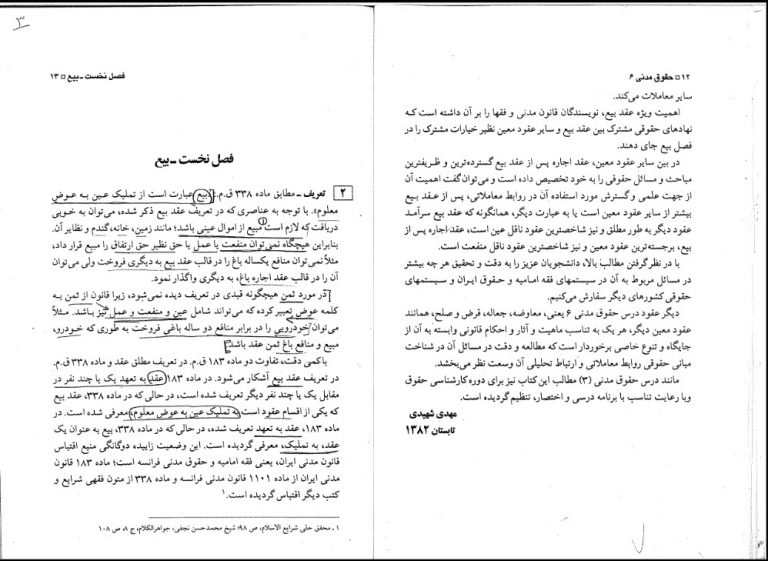 ۱۲ □ حقوق مدنی ۶
سایر معاملات می‌کند.
اهمیت ویژه عقد بیع، نویسندگان قانون مدنی و فقها را بر آن داشته است که
نهادهای حقوقی مشترک بین عقد بیع و سایر عقود معین نظیر خیارات مشترک را در
فصل بیع جای دهند.
در بین سایر عقود معین، عقد اجاره پس از عقد بیع گسترده‌ترین و ظریفترین
مباحث و مسائل حقوقی را به خود تخصیص داده است و می‌توان گفت اهمیت آن
از جهت علمی و گسترش مورد استفاده آن در روابط معاملاتی، پس از عقد بیع
بیشتر از سایر عقود معین است یا به عبارت دیگر، همانگونه که عقد بیع سرآمد
عقود دیگر به طور مطلق و نیز شاخصترین عقود ناقل عین است، عقد اجاره پس از
بیع، برجسته‌ترین عقود معین و نیز شاخصترین عقود ناقل منفعت است.
با در نظر گرفتن مطالب بالا، دانشجویان عزیز را به دقت و تحقیق هر چه بیشتر
در مسائل مربوط به آن در سیستمهای فقه امامیه و حقوق ایران و سیستمهای
حقوقی کشورهای دیگر سفارش می‌کنیم.
دیگر عقود درس حقوق مدنی ۶ یعنی، معاوضه، جعاله، قرض و صلح، همانند
عقود معین دیگر، هر یک به تناسب ماهیت و آثار و احکام قانونی وابسته به آن از
جایگاه و تنوع خاصی برخوردار است که مطالعه و دقت در مسائل آن در شناخت
مبانی حقوقی روابط معاملاتی و ارتباط تحلیلی آن وسعت نظر می‌بخشد.
مانند درس حقوق مدنی (۳) مطالب این کتاب نیز برای دوره کارشناسی حقوق
و با رعایت تناسب با برنامه درسی و اختصار، تنظیم گردیده است.
مهدی شهیدی
تابستان ۱۳۸۲
۳
فصل نخست ـ بیع □ ۱۳
فصل نخست ـ بیع
۲ تعریف ـ مطابق ماده ۳۳۸ ق.م. «بیع عبارت است از تملیک عین به عوض
معلوم». با توجه به عناصری که در تعریف عقد بیع ذکر شده، می‌توان به خوبی
دریافت که لازم است مبیع از اموال عینی باشد؛ مانند زمین، خانه، گندم و نظایر آن.
بنابراین هیچگاه نمی‌توان منفعت یا عمل یا حق نظیر حق ارتفاق را مبیع قرار داد،
مثلاً نمی‌توان منافع یکساله باغ را در قالب عقد بیع به دیگری فروخت ولی می‌توان
آن را در قالب عقد اجاره باغ، به دیگری واگذار نمود.
در مورد ثمن هیچگونه قیدی در تعریف دیده نمی‌شود، زیرا قانون از ثمن به
کلمه عوض تعبیر کرده که می‌تواند شامل عین و منفعت و عمل نیز باشد. مثلاً
می‌توان خودرویی را در برابر منافع دو ساله باغی فروخت به طوری که خودرو،
مبیع و منافع باغ ثمن عقد باشد.
با کمی دقت، تفاوت دو ماده ۱۸۳ ق.م. در تعریف مطلق عقد و ماده ۳۳۸ ق.م.
در تعریف عقد بیع آشکار می‌شود. در ماده ۱۸۳ عقد به تعهد یک یا چند نفر در
مقابل یک یا چند نفر دیگر تعریف شده است، در حالی که در ماده ۳۳۸، عقد بیع
که یکی از اقسام عقود است به تملیک عین به عوض معلوم، معرفی شده است. در
ماده ۱۸۳، عقد به تعهد تعریف شده، در حالی که در ماده ۳۳۸، بیع به عنوان یک
عقد، به تملیک، معرفی گردیده است. این وضعیت زاییده دوگانگی منبع اقتباس
قانون مدنی ایران، یعنی فقه امامیه و حقوق مدنی فرانسه است؛ ماده ۱۸۳ قانون
مدنی ایران از ماده ۱۱۰۱ قانون مدنی فرانسه و ماده ۳۳۸ از متون فقهی شرایع و
کتب دیگر اقتباس گردیده است.۱
۱ ـ محقق حلی شرایع الاسلام، ص ۹۸؛ شیخ محمدحسن نجفی، جواهرالکلام، ج ۸، ص ۱۰۸